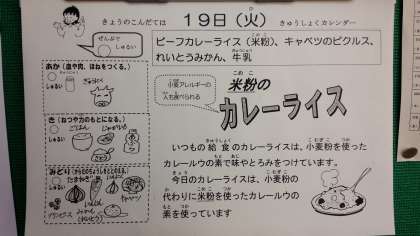 きょうのこんだては
19日（火）
きゅうしょくカレンダー
ぜんぶで
しゅるい
ビーフカレーライス（米粉）、キャベツのピクルス、
れいとうみかん、牛乳
あか（血や肉、ほねをつくる。）
しゅるい
ぎゅうにく
き（ねつや力のもとになる。）
しゅるい
ごはん
じゃがいも
みどり
しゅるい
たまねぎ
にんじん
キャベツ
グリンピース
みかん
小麦アレルギーの
人も食べられる
米粉の
カレーライス
いつもの給食のカレーライスは、小麦粉を使っ
たカレールウの素で味やとろみをつけています。
今日のカレーライスは、小麦粉の
代わりに米粉を使ったカレールウの
素を使っています